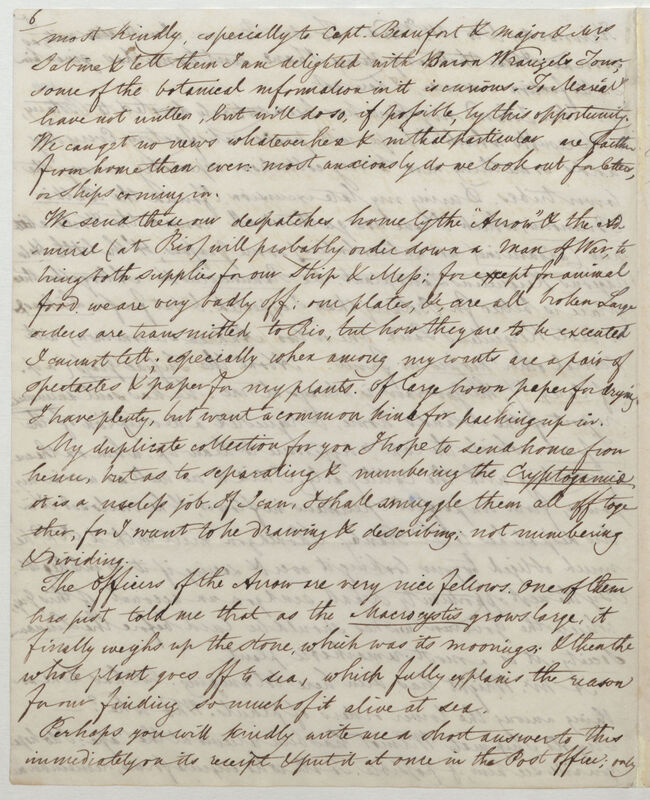 6
most kindly, especially to Capt. Beaufort & Major & Mrs
Sabine & tell them I am delighted with Baron Wrangels Tour;
some of the botanical information in it is curious. To Maria I
have not written, but will do so, if possible, by this opportunity.
We can get no news whatever here & in that particular are farther
from home than ever: most anxiously do we look out for letters,
or ships coming in.
We send these our despatches home by the "Arrow" & the Ad
-miral (at Rio) will probably order down a Man of War, to
bring both supplies for our Ship & Mess; for except for animal
food we are very badly off; our plates, &c are all broken Large
orders are transmitted to Rio, but how they are to be executed
I cannot tell; especially when among my wants are a pair of
spectacles & paper for my plants. Of large brown paper for drying
I have plenty, but want a common kind for packing up in.
My duplicate collection for you I hope to send home from
hence, but as to separating & numbering the Cryptogamia,
it is a useless job. If I can, I shall smuggle them all off toge
ther, for I want to be drawing & describing; not numbering
& dividing.
The Officers of the Arrow are very nice fellows. One of them
has just told me that as the Macrocystis grows large, it
finally weighs up the stone, which was its moorings; & then the
whole plant goes off to sea, which fully explains the reason
for our finding so much of it alive at sea.
Perhaps you will kindly write me a short answer to this
immediately on its receipt & put it at once in the Post office; only